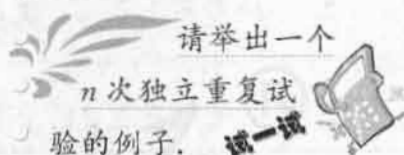 请举出一个
n次独立重复试
验的例子. 试一试